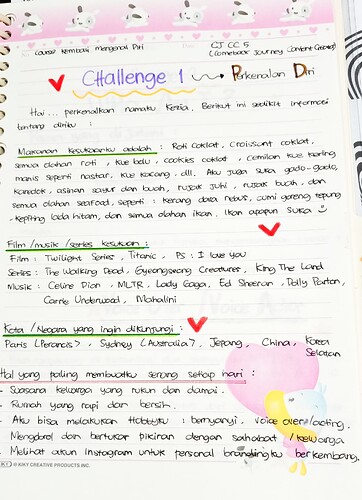 Course Kembali Mengenal Diri
CJ CC 5
(Comeback Journey Content Creator)
Challenge 1 Perkenalan Diri
Hai... perkenalkan namaku Kezia. Berikut ini sedikit informasi
tentang diriku :
Makanan kesukaanku adalah : Roti coklat, Croissant coklat,
semua olahan roti, kue bolu, cookies coklat, cemilan kue kering
manis seperti nastar, kue kacang, dll. Aku juga suka gado-gado,
karedok, asinan sayur dan buah, rujak juhi, rujak buah, dan
semua olahan seafood, seperti : kerang dara rebus, cumi goreng tepung,
kepiting lada hitam, dan semua olahan ikan. Ikan apapun suka
Film/musik/series kesukaan :
Film : Twilight Series, Titanic, PS : I love you
Series : The Walking Dead, Gyeongseong Creatures, King The Land
Music : Celine Dion, MLTR, Lady Gaga, Ed Sheeran, Dolly Parton,
Carrie Underwood, Mahalini
Kota / Negara yang ingin dikunjungi :
Paris (Perancis), Sydney (Australia), Jepang, China, Korea
Selatan
Hal yang paling membuatku senang setiap hari :
- Suasana keluarga yang rukun dan damai.
- Rumah yang rapi dan bersih.
- Aku bisa melakukan hobbyku : bernyanyi, voice over/acting.
- Mengobrol dan bertukar pikiran dengan sahabat / keluarga
- Melihat akun Instagram untuk personal brandingku berkembang.
© KIKY CREATIVE PRODUCTS INC.